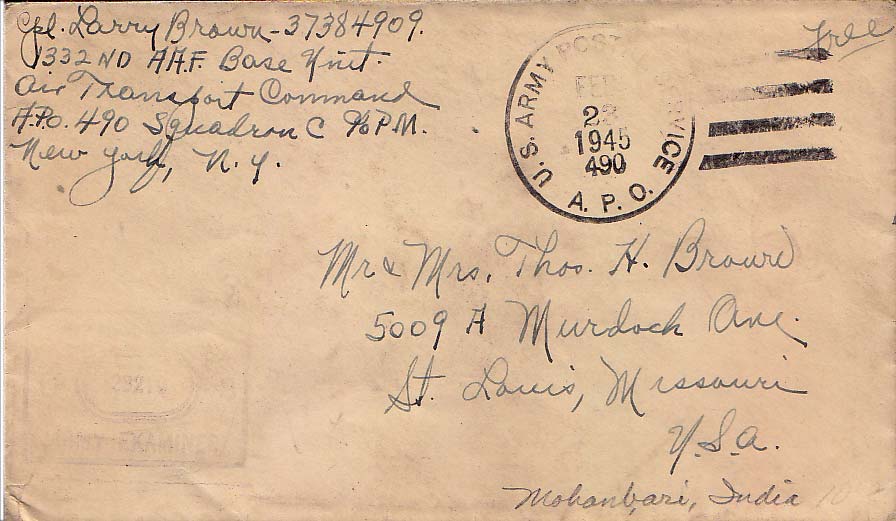 Cpl. Larry Brown-37384909.
1332ND A.A.F. Base Unit.
Air Transport Command
A.P.O. 490 Squadron C % P.M.
New York, N.Y.
Free
U.S. ARMY POSTAL SERVICE
FEB
22
1945
490
A.P.O.
Mr & Mrs. Thos. H. Brown
5009 A Murdock Ave.
St. Louis, Missouri
U.S.A.
Mohanbari, India 10